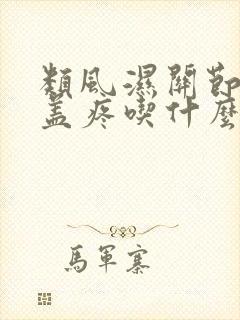 類風濕關節
蓋疼喫什麼
馬軍寨